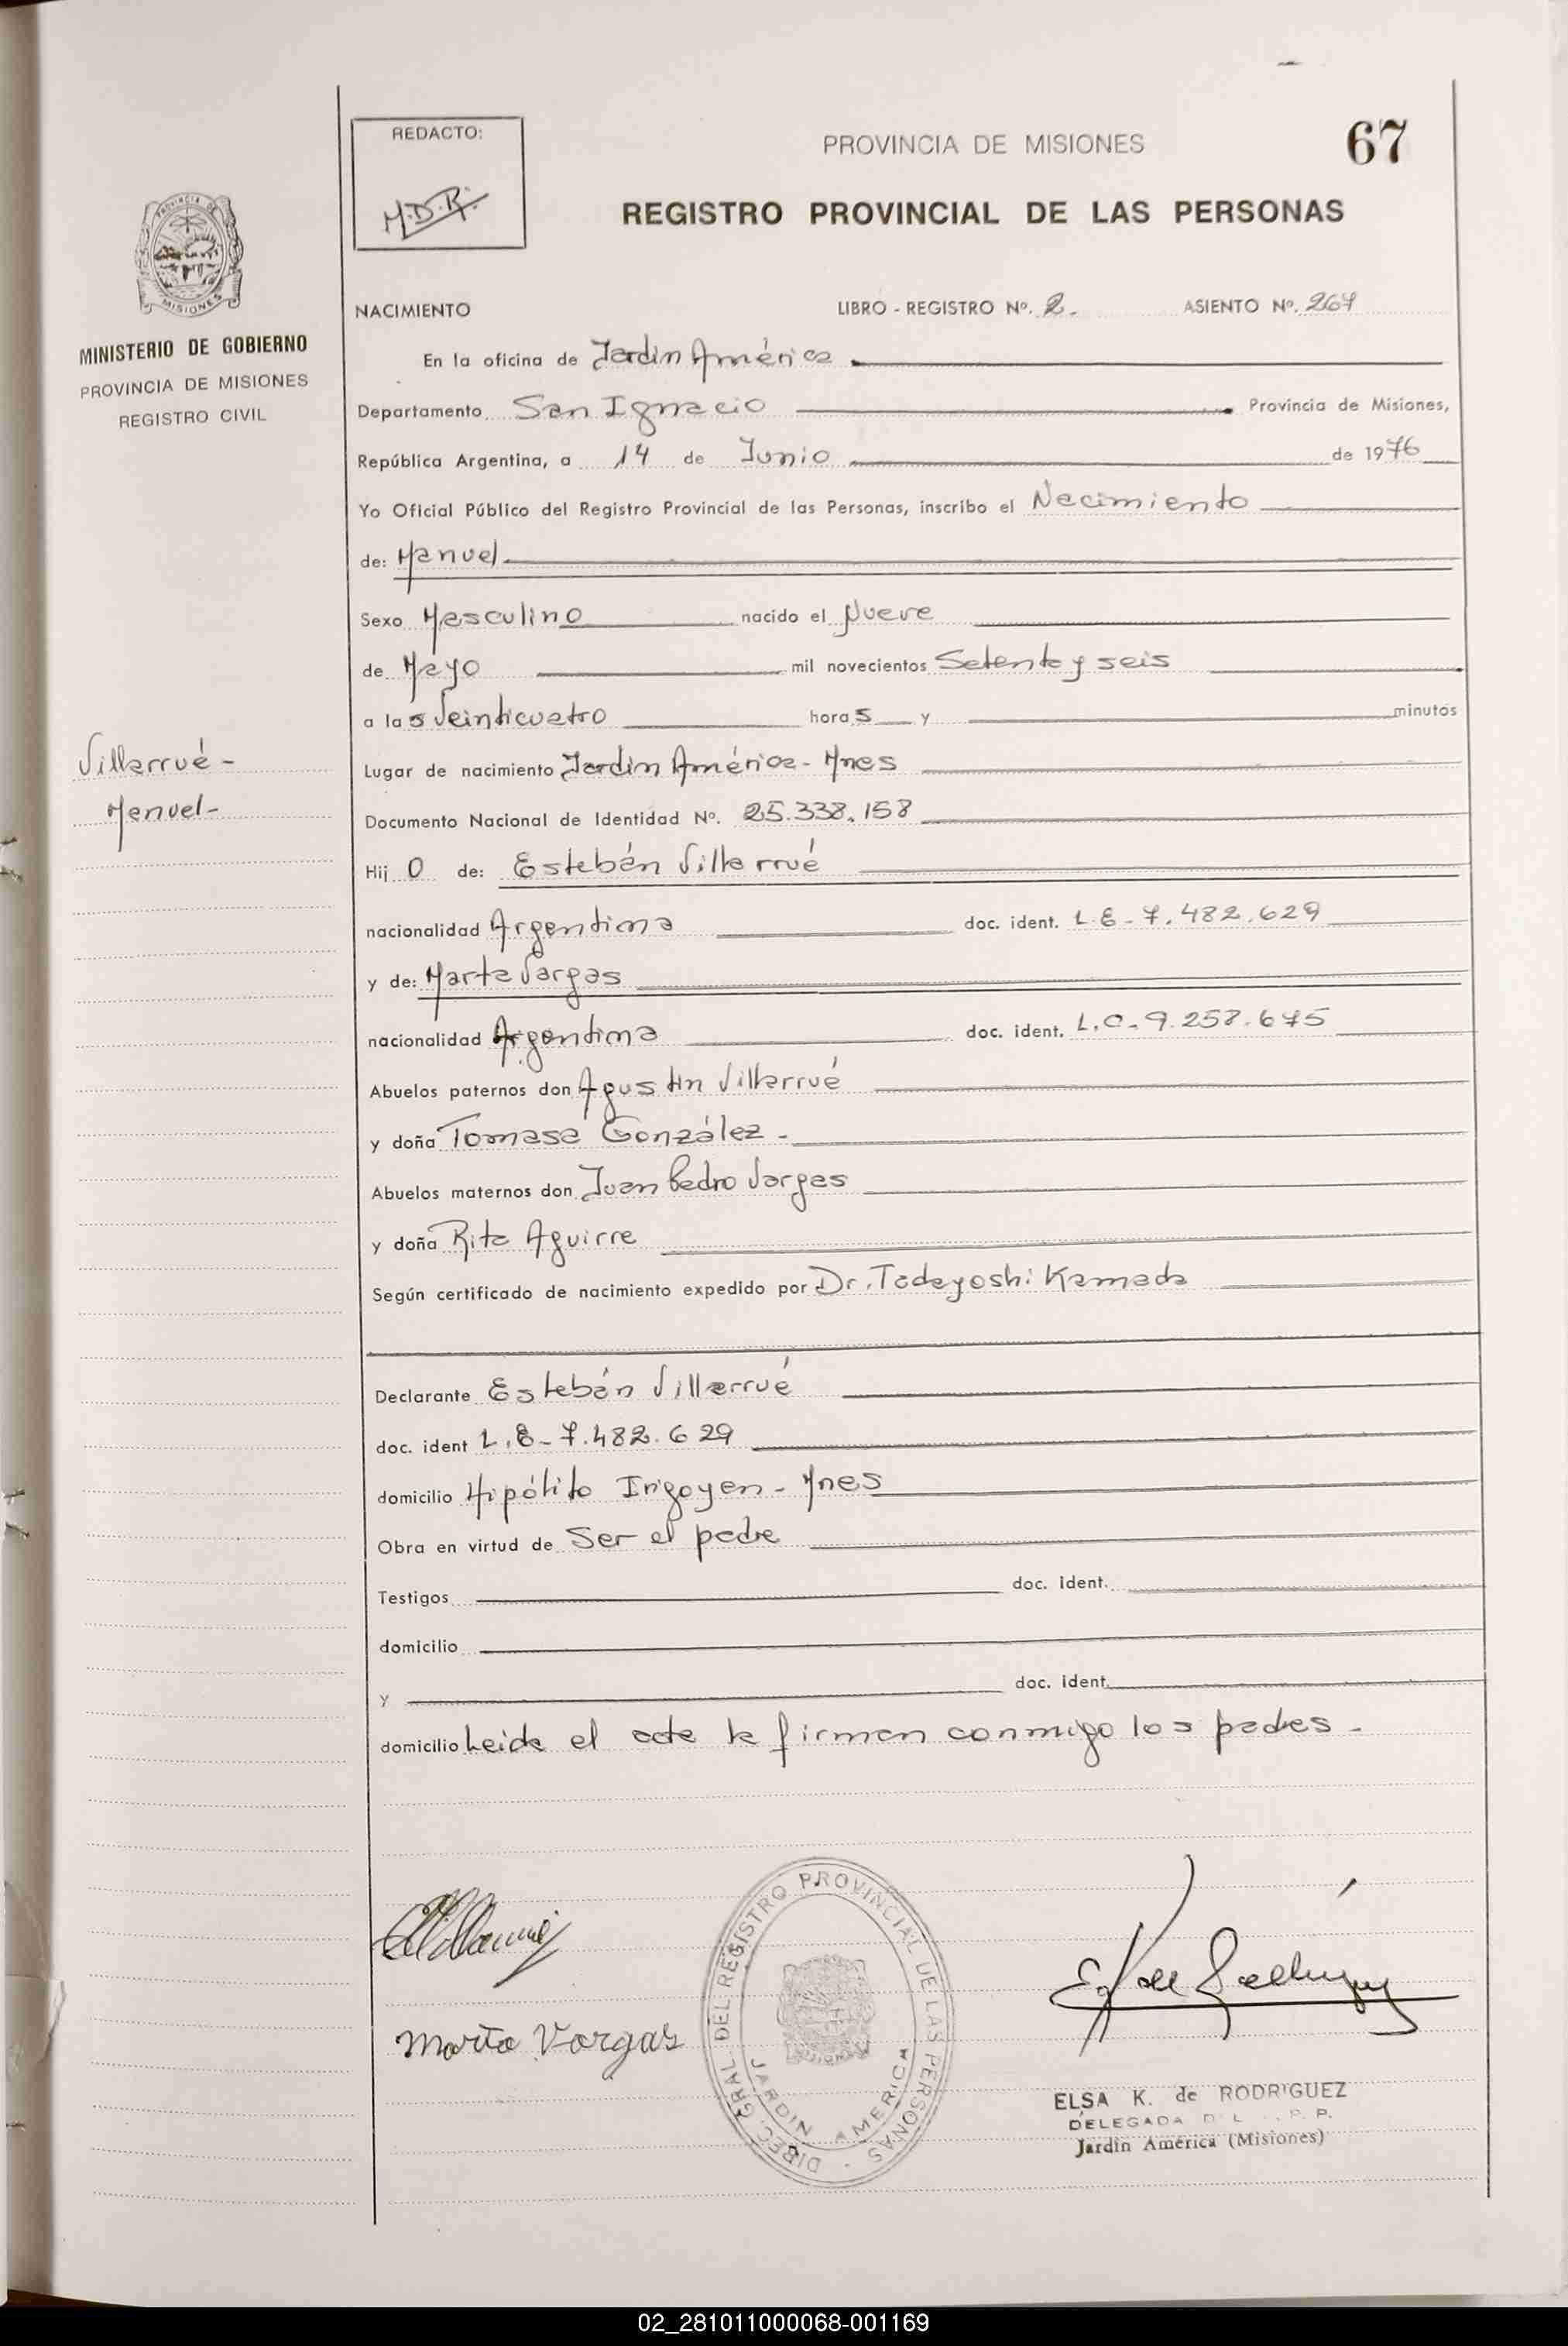 REDACTO:
M.D.R.
PROVINCIA DE MISIONES
67
REGISTRO PROVINCIAL DE LAS PERSONAS
PROVINCIA DE
MISIONES
MINISTERIO DE GOBIERNO
PROVINCIA DE MISIONES
REGISTRO CIVIL
NACIMIENTO LIBRO - REGISTRO Nº. 2. ASIENTO Nº. 267
En la oficina de Jardín América
Departamento San Ignacio Provincia de Misiones,
República Argentina, a 14 de Junio de 1976
Yo Oficial Público del Registro Provincial de las Personas, inscribo el Nacimiento
de: Manuel
Sexo Masculino nacido el Nueve
de Mayo mil novecientos Setenta y seis
a las Veinticuatro horas y minutos
Villarrué -
Manuel -
Lugar de nacimiento Jardín América - Mnes
Documento Nacional de Identidad Nº. 25.338.158
Hijo de: Estebán Villarrué
nacionalidad Argentina doc. ident. L.E - 7.482.629
y de: Marta Vargas
nacionalidad Argentina doc. ident. L.C - 9.258.675
Abuelos paternos don Agustín Villarrué
y doña Tomasa González -
Abuelos maternos don Juan Pedro Vargas
y doña Rita Aguirre
Según certificado de nacimiento expedido por Dr. Tadayoshi Kamada
Declarante Estebán Villarrué
doc. ident L.E - 7.482.629
domicilio Hipólito Irigoyen - Mnes
Obra en virtud de Ser el padre
Testigos doc. ident.
domicilio
y doc. ident.
domicilio Leida el acta la firman conmigo los padres -
Marta Vargas
DIREC. GRAL DEL REGISTRO PROVINCIAL DE LAS PERSONAS
JARDIN AMERICA
ELSA K. de RODRIGUEZ
DELEGADA D L P. P.
Jardín América (Misiones)
02_281011000068-001169